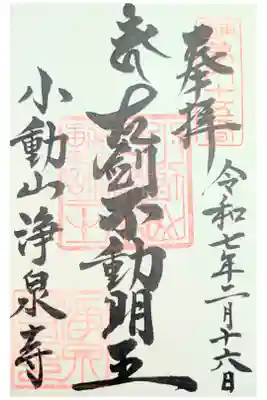 奉拝
令和七年二月十六日
古剣不動明王
小動山浄泉寺